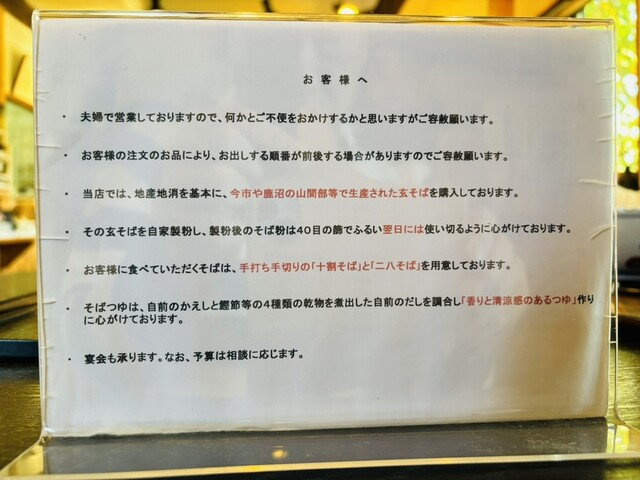 お客様へ
・ 夫婦で営業しておりますので、何かとご不便をおかけするかと思いますがご容赦願います。
・ お客様の注文のお品により、お出しする順番が前後する場合がありますのでご容赦願います。
・ 当店では、地産地消を基本に、今市や鹿沼の山間部等で生産された玄そばを購入しております。
・ その玄そばを自家製粉し、製粉後のそば粉は40目の篩でふるい翌日には使い切るように心がけております。
・ お客様に食べていただくそばは、手打ち手切りの「十割そば」と「二八そば」を用意しております。
・ そばつゆは、自前のかえしと鰹節等の4種類の乾物を煮出した自前のだしを調合し「香りと清涼感のあるつゆ」作り
に心がけております。
・ 宴会も承ります。なお、予算は相談に応じます。